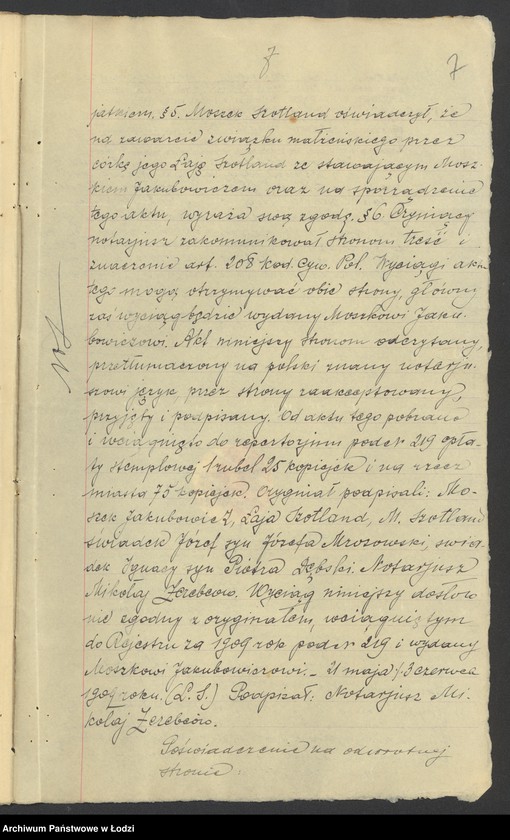 7
7
jątkiem. § 5. Moszek Szotland oświadczył, że
na zawarcie związku małżeńskiego przez
córkę jego Łaję Szotland ze stawającym Mosz-
kiem Jakubowiczem oraz na sporządzenie
tego aktu, wyraża swą zgodę. § 6. Czyniący
notarjusz zakomunikował stronom treść i
znaczenie art. 208 kod. Cyw. Pol. Wyciągi aktu
tego mogą otrzymywać obie strony, główny
zaś wyciąg będzie wydany Moszkowi Jaku-
bowiczowi. Akt niniejszy stronom odczytany,
przetłumaczony na polski znany notarju-
szowi język przez strony zaakceptowany,
przyjęty i podpisany. Od aktu tego pobrano
i wciągnięto do repertorjum pod № 219 opła-
ty stemplowej 1 rubel 25 kopiejek i na rzecz
miasta 75 kopiejek. Oryginał podpisali: Mo-
szek Jakubowicz, Łaja Szotland, M. Szotland
świadek Józef syn Józefa Mrozowski, świa-
dek Ignacy syn Piotra Dębski. Notarjusz
Mikołaj Żerebcow. Wyciąg niniejszy dosłow
nie zgodny z oryginałem, wciągnięty
do Rejestru za 1909 rok pod № 219 i wydany
Moszkowi Jakubowiczowi. - 21 maja / 3 czerwca
1909 roku. (L. S.) Podpisał: Notarjusz Mi-
kołaj Żerebcow.
Poświadczenie na odwrotnej
stronie:
Archiwum Państwowe w Łodzi